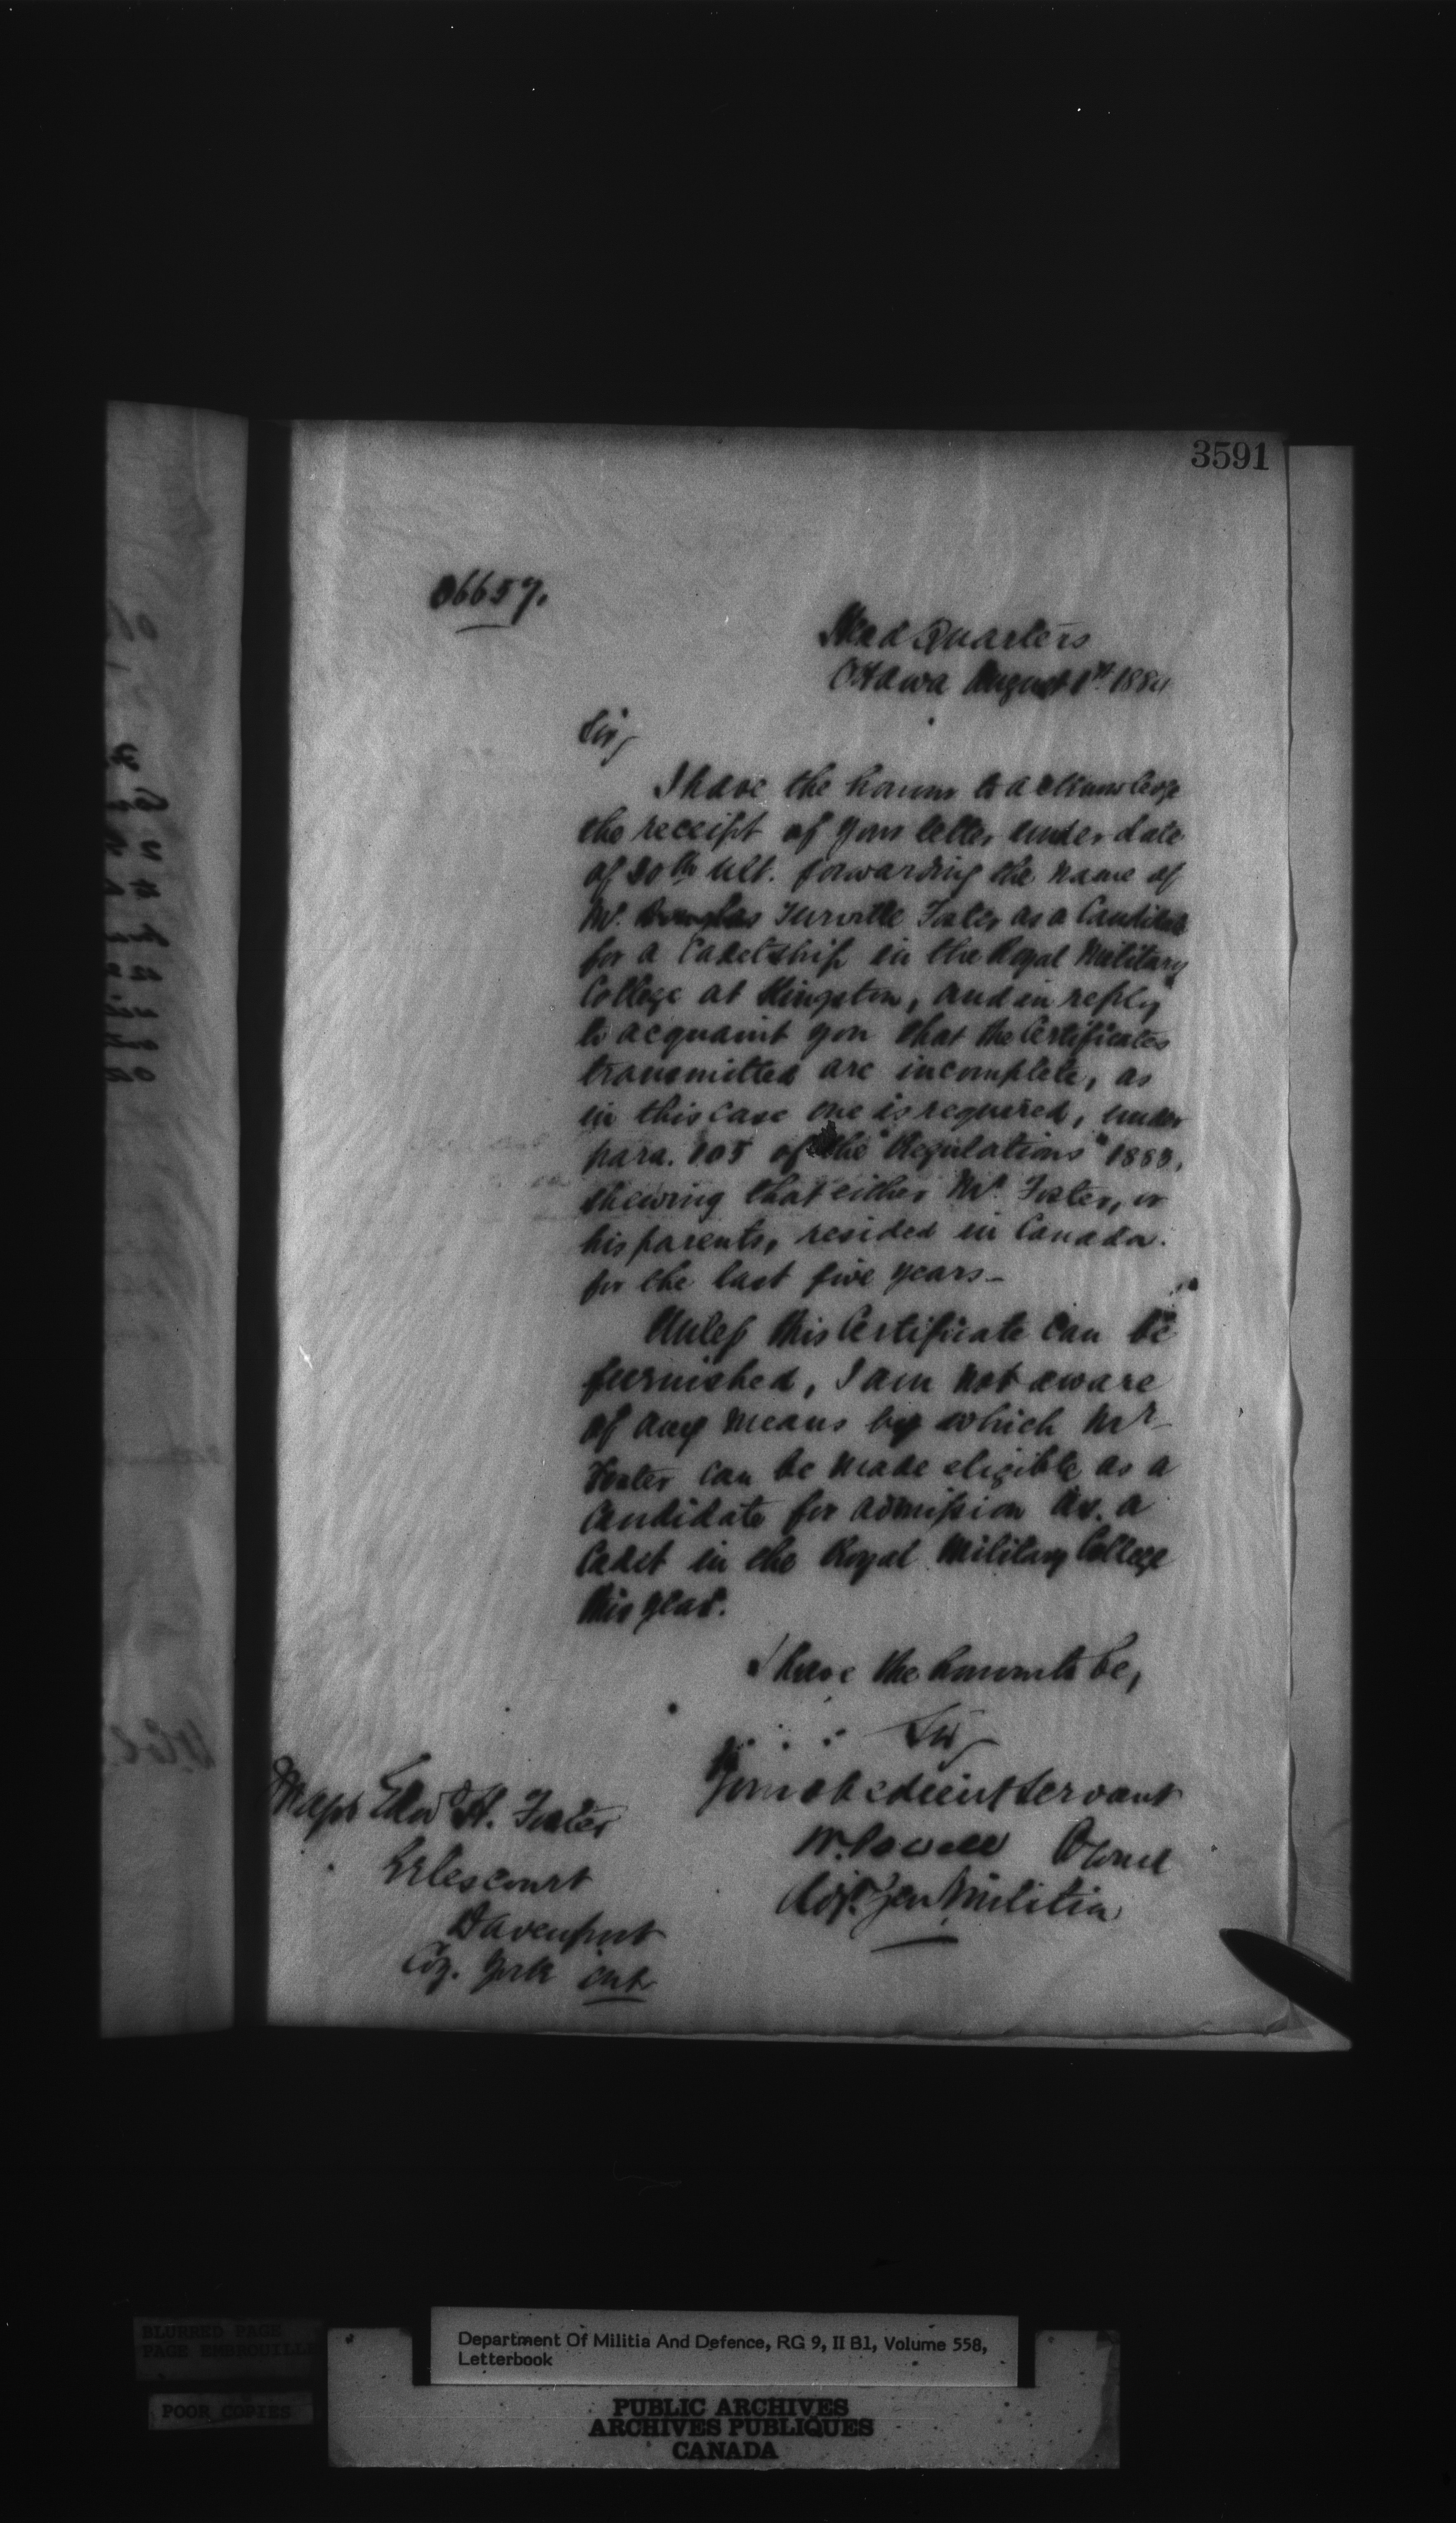 3591
06657.
Head Quarters
Ottawa August 1st 1884
Sir,
I have the honour to acknowledge
the receipt of your letter under date
of 30th ult. forwarding the name of
Mr. Douglas Turville Foster as a Candidate
for a Cadetship in the Royal Military
College at Kingston, and in reply
to acquaint you that the Certificates
transmitted are incomplete, as
in this case one is required, under
para. 105 of the "Regulations" 1883,
shewing that either Mr. Foster, or
his parents, resided in Canada
for the last five years -
Unless this Certificate can be
furnished, I am not aware
of any means by which Mr
Foster can be made eligible as a
Candidate for admission as a
Cadet in the Royal Military College
this year.
I have the honour to be,
Sir
Your obedient Servant
W. Powell Colonel
Adjt. Gen Militia
Edwd H. Foster
Erlescourt
Davenport
Co. York Ont
BLURRED PAGE
PAGE EMBROUILLE
POOR COPIES
Department Of Militia And Defence, RG 9, II B1, Volume 558,
Letterbook
PUBLIC ARCHIVES
ARCHIVES PUBLIQUES
CANADA